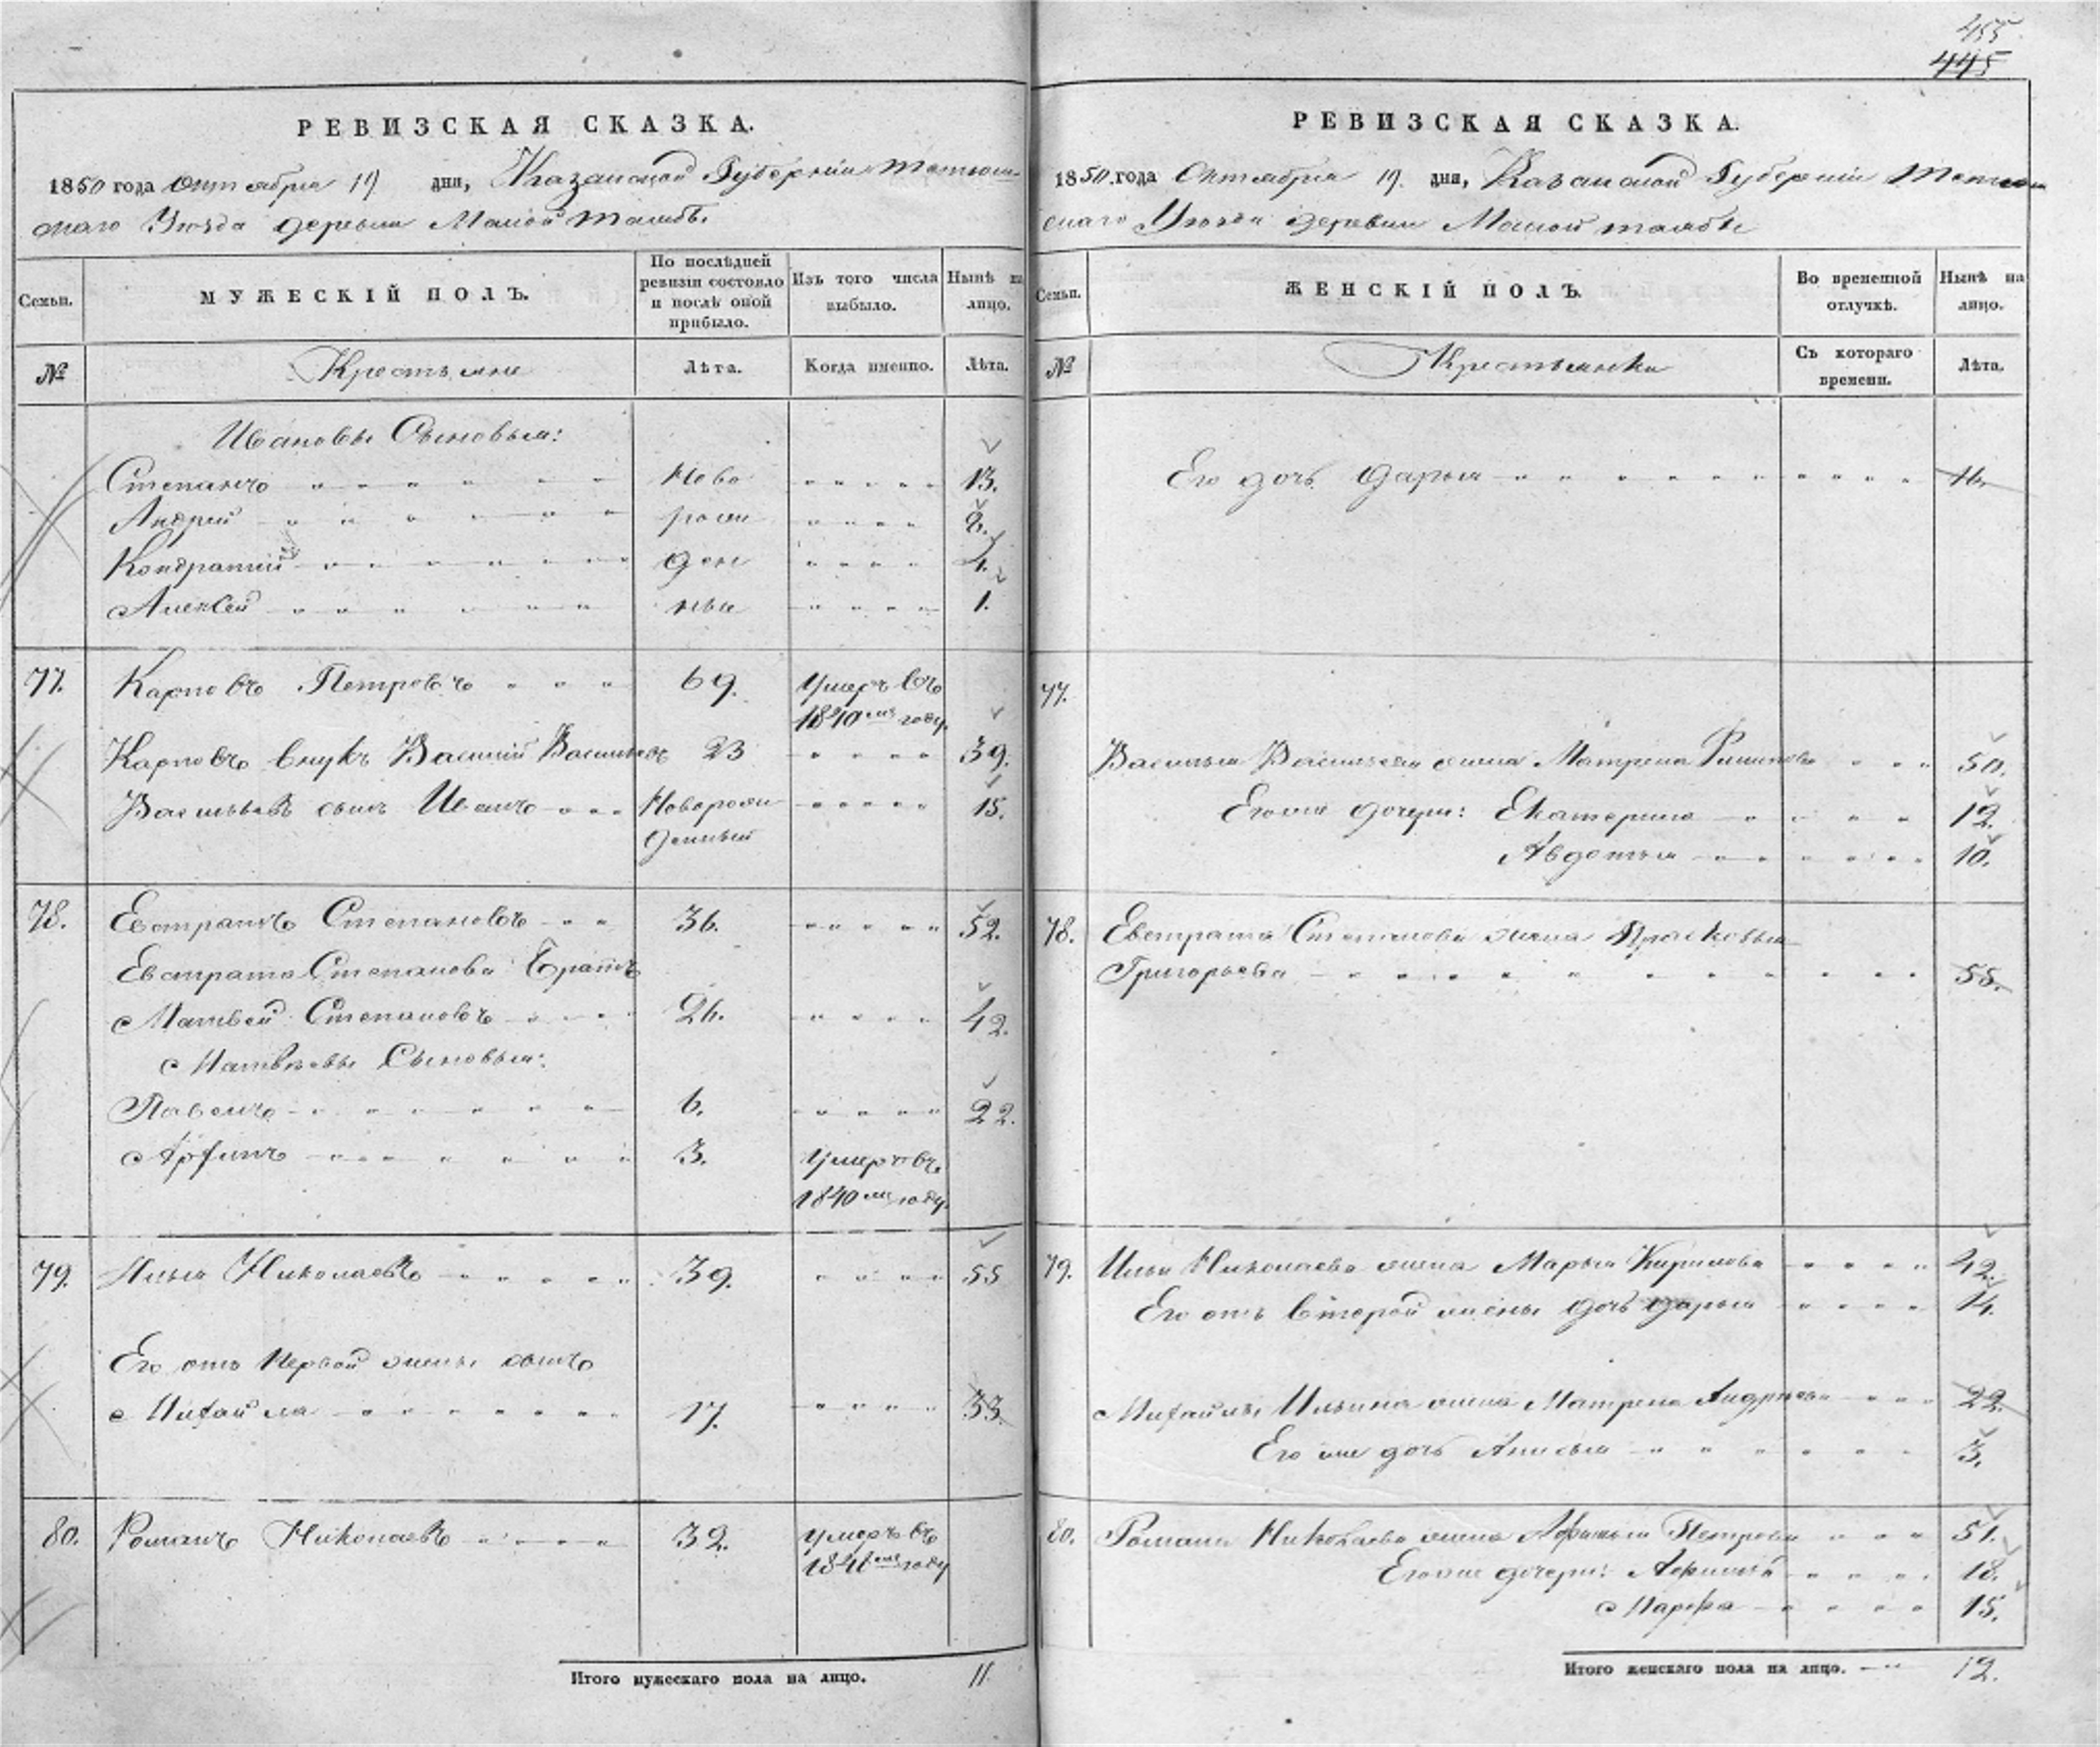 455
445
РЕВИЗСКАЯ СКАЗКА.
1850 года Октября 19 дни, Казанской Губернии Тетюш-
скаго Уѣзда деревни Малой
Семьи.
МУЖЕСКІЙ ПОЛЪ.
По послѣдней ревизіи состояло и послѣ оной прибыло.
Изъ того числа выбыло.
Нынѣ на лицо.
№
Крестьяне
Лѣта.
Когда именно.
Лѣта.
Ивановы Сыновья:
Степанъ Ново 13.
Андрей рож 8.
Кондратий ден 4.
Алексей ные 1.
77. Карповъ Петровъ 69. Умеръ въ
1840 мъ году.
Карповъ внукъ Василий Васильевъ 23 39.
Васильевъ сынъ Иванъ Новорож 15.
денный
78. Евстратъ Степановъ 36. 52.
Евстрата Степанова братъ
Матвей Степановъ 26. 42.
Матвѣевы Сыновья:
Павелъ 6. 22.
3. Умеръ въ
1840 мъ году.
79. Илья Николаевъ 39. 55
Его отъ первой жены сынъ
Михайла 17. 33.
80. Романъ Николаевъ 32. умеръ въ
году
Итого мужескаго пола на лицо. 11.
РЕВИЗСКАЯ СКАЗКА.
1850 года Октября 19. дни, Казанской Губерніи Тетюш
скаго Уѣзда деревни Малой
Семьи.
ЖЕНСКІЙ ПОЛЪ.
Во временной отлучкѣ.
Нынѣ на лицо.
№
Крестьянки
Съ котораго времени.
Лѣта.
Его дочь Дарья 16.
77.
Василья Васильева жена Матрена 50.
Его же дочери: Екатерина 12.
Авдотья 10.
78. Евстрата Степанова жена Прасковья
Григорьева 55.
79. Ильи Николаева жена Марья Кирилова 42.
Его отъ второй жены дочь Дарья 14.
Михайлы Ильина жена Матрена Андреева 22.
Его же дочь Анисья 3.
80. Романа Николаева жена Петрова 51.
Его же дочери: 18.
Марфа 15.
Итого женскаго пола на лицо. 12.